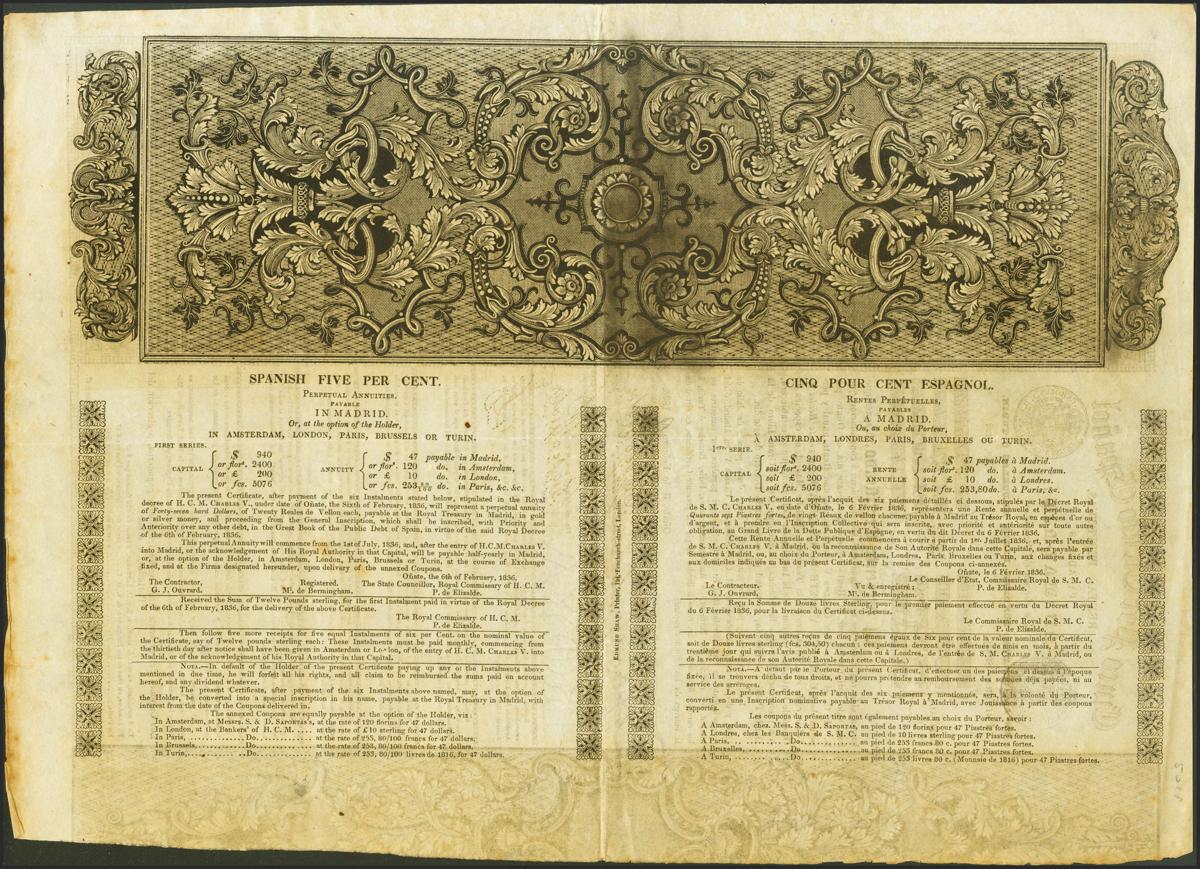 SPANISH FIVE PER CENT.
PERPETUAL ANNUITIES,
PAYABLE
IN MADRID.
Or, at the option of the Holder,
IN AMSTERDAM, LONDON, PARIS, BRUSSELS OR TURIN.
FIRST SERIES.
CAPITAL
$ 940
or flors. 2400
or £ 200
or fcs. 5076
ANNUITY
$ 47 payable in Madrid,
or flors. 120 do. in Amsterdam,
or £ 10 do. in London,
or fcs. 253 80/100 do. in Paris, &c. &c.
The present Certificate, after payment of the six Instalments stated below, stipulated in the Royal
decree of H. C. M. CHARLES V., under date of Oñate, the Sixth of February, 1836, will represent a perpetual annuity
of Forty-seven hard Dollars, of Twenty Reales de Vellon each, payable at the Royal Treasury in Madrid, in gold
or silver money, and proceeding from the General Inscription, which shall be inscribed, with Priority and
Anteriority over any other debt, in the Great Book of the Public Debt of Spain, in virtue of the said Royal Decree
of the 6th of February, 1836.
This perpetual Annuity will commence from the 1st of July, 1836, and, after the entry of H.C.M. CHARLES V.
into Madrid, or the acknowledgement of His Royal Authority in that Capital, will be payable half-yearly in Madrid,
or, at the option of the Holder, in Amsterdam, London, Paris, Brussels or Turin, at the course of Exchange
fixed, and at the Firms designated hereunder, upon delivery of the annexed Coupons.
Oñate, the 6th of February, 1836,
The Contractor, Registered. The State Councillor, Royal Commissary of H. C. M.
G. J. Ouvrard. Ml. de Bermingham. P. de Elizalde.
Received the Sum of Twelve Pounds sterling, for the first Instalment paid in virtue of the Royal Decree
of the 6th of February, 1836, for the delivery of the above Certificate.
The Royal Commissary of H. C. M.
P. de Elizalde.
Then follow five more receipts for five equal Instalments of six per Cent. on the nominal value of
the Certificate, say of Twelve pounds sterling each: These Instalments must be paid monthly, commencing from
the thirtieth day after notice shall have been given in Amsterdam or London, of the entry of H. C. M. CHARLES V. into
Madrid, or of the acknowledgement of his Royal Authority in that Capital.
NOTA.—In default of the Holder of the present Certificate paying up any of the Instalments above
mentioned in due time, he will forfeit all his rights, and all claim to be reimbursed the sums paid on account
hereof, and any dividend whatever.
The present Certificate, after payment of the six Instalments above named, may, at the option of
the Holder, be converted into a special inscription in his name, payable at the Royal Treasury in Madrid, with
interest from the date of the Coupons delivered in.
The annexed Coupons are equally payable at the option of the Holder, viz:
In Amsterdam, at Messrs. S. & D. SAPORTAS's, at the rate of 120 florins for 47 dollars.
In London, at the Bankers' of H. C. M. .... at the rate of £10 sterling for 47 dollars.
In Paris, ............ Do. ............ at the rate of 253, 80/100 francs for 47 dollars.
In Brussels, .......... Do. ............ at the rate of 253, 80/100 francs for 47 dollars.
In Turin, ............ Do. ............ at the rate of 253, 80/100 livres de 1816, for 47 dollars.
EDWARD SHAW, Printer, 114, Fenchurch-street, London.
CINQ POUR CENT ESPAGNOL.
RENTES PERPÉTUELLES,
PAYABLES
À MADRID.
Ou, au choix du Porteur,
À AMSTERDAM, LONDRES, PARIS, BRUXELLES OU TURIN.
1ere. SERIE.
CAPITAL
$ 940
soit flors. 2400
soit £ 200
soit fcs. 5076
RENTE ANNUELLE
$ 47 payables à Madrid.
soit flors. 120 do. à Amsterdam.
soit £ 10 do. à Londres.
soit fcs. 253,80 do. à Paris, &c.
Le présent Certificat, après l'acquit des six paiemens détaillés ci dessous, stipulés par le Décret Royal
de S. M. C. CHARLES V., en date d'Oñate, le 6 Février 1836, représentera une Rente annuelle et perpétuelle de
Quarante sept Piastres fortes, de vingt Réaux de vellon chacune, payable à Madrid au Trésor Royal, en espèces d'or ou
d'argent, et à prendre en l'Inscription Collective qui sera inscrite, avec priorité et antériorité sur toute autre
obligation, au Grand Livre de la Dette Publique d'Espagne, en vertu du dit Décret du 6 Février 1836.
Cette Rente Annuelle et Perpétuelle commencera à courir à partir du 1er Juillet 1836, et, après l'entrée
de S. M. C. CHARLES V. à Madrid, ou la reconnaissance de Son Autorité Royale dans cette Capitale, sera payable par
Semestre à Madrid, ou, au choix du Porteur, à Amsterdam, Londres, Paris, Bruxelles ou Turin, aux changes fixés et
aux domiciles indiqués au bas du présent Certificat, sur la remise des Coupons ci-annexés.
Oñate, le 6 Février, 1836.
Le Conseiller d'Etat, Commissaire Royal de S. M. C.
Le Contracteur. Vu & enregistré:
G. J. Ouvrard. Ml. de Bermingham. P. de Elizalde.
Reçu la Somme de Douze livres Sterling, pour le premier paiement effectué en vertu du Décret Royal
du 6 Février 1836, pour la livraison du Certificat ci-dessus.
Le Commissaire Royal de S. M. C.
P. de Elizalde.
(Suivent cinq autres reçus de cinq paiemens égaux de Six pour cent de la valeur nominale du Certificat,
soit de Douze livres sterling (fcs. 304,50) chacun: ces paiemens devront être effectués de mois en mois, à partir du
trentième jour qui suivra l'avis publié à Amsterdam ou à Londres, de l'entrée de S. M. C. CHARLES V. à Madrid, ou
de la reconnaissance de son Autorité Royale dans cette Capitale.)
NOTA.—A défaut par le Porteur du présent Certificat, d'effectuer un des paiemens ci dessus à l'époque
fixée, il se trouvera déchu de tous droits, et ne pourra prétendre au remboursement des sommes déjà payées, ni au
service des arrérages.
Le présent Certificat, après l'acquit des six paiemens y mentionnés, sera, à la volonté du Porteur,
converti en une Inscription nominative payable au Trésor Royal à Madrid, avec Jouissance à partir des coupons
rapportés.
Les coupons du présent titre sont également payables, au choix du Porteur, savoir:
A Amsterdam, chez Mess. S. & D. SAPORTAS, au pied de 120 florins pour 47 Piastres fortes.
A Londres, chez les Banquiers de S. M. C. au pied de 10 livres sterling pour 47 Piastres fortes.
A Paris, ............ Do. ............ au pied de 253 francs 80 c. pour 47 Piastres fortes.
A Bruxelles, .......... Do. ............ au pied de 253 francs 80 c. pour 47 Piastres fortes.
A Turin, ............ Do. ............ au pied de 253 livres 80 c. (Monnaie de 1816) pour 47 Piastres fortes.